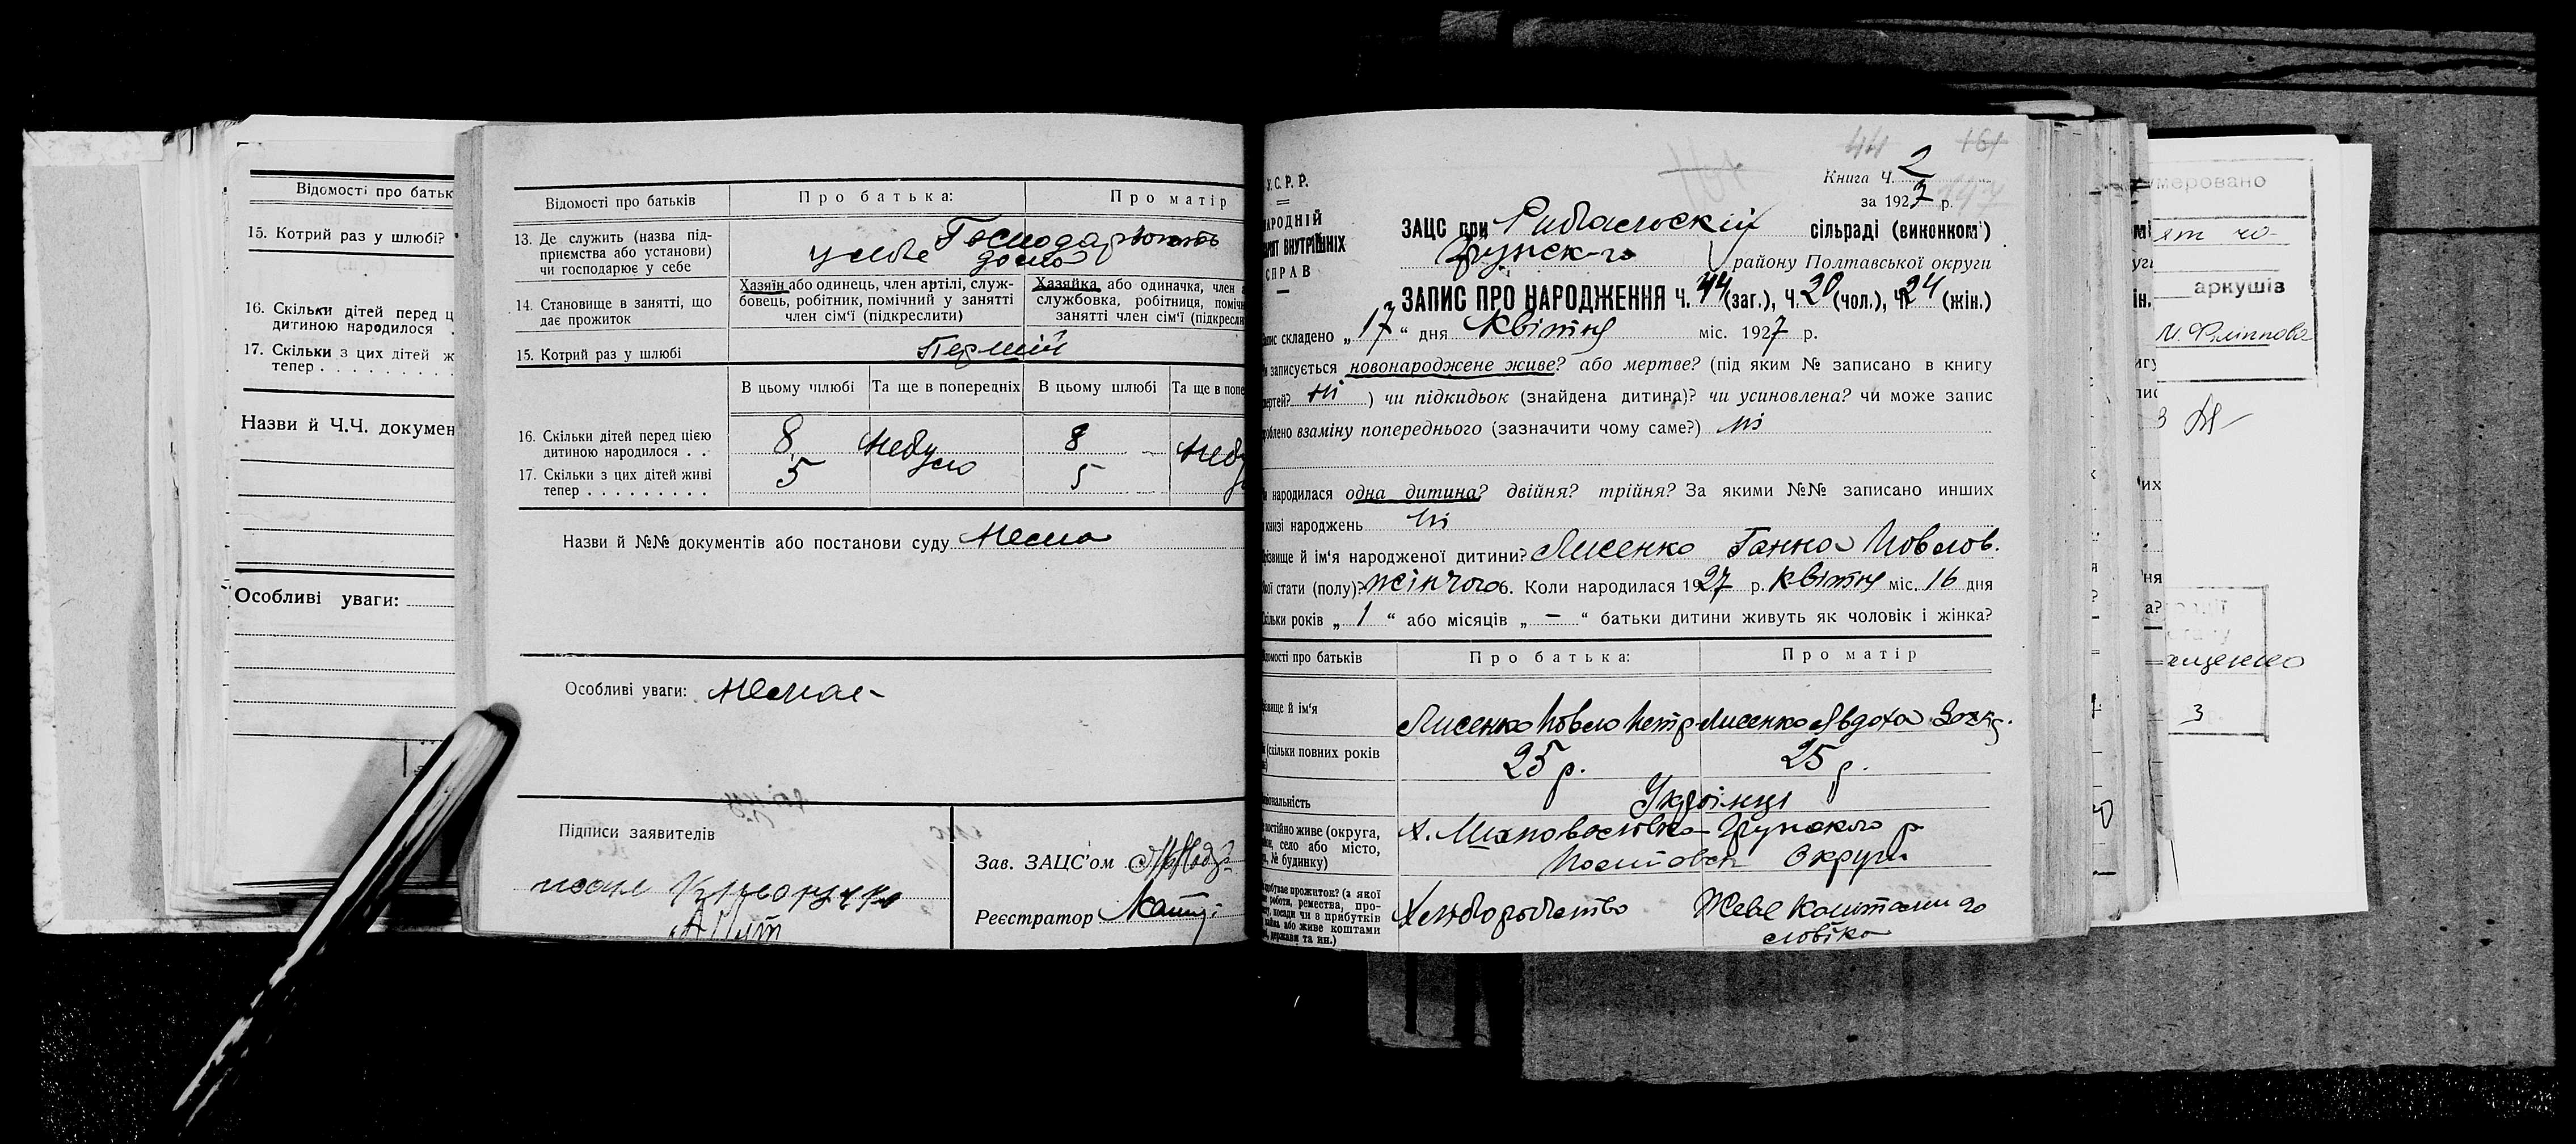 Відомості про батьк
15. Котрий раз у шлюбі?
16. Скільки дітей перед ц
дитиною народилося
17. Скільки з цих дітей ж
тепер . . . . . . . . .
Назви й Ч.Ч. докумен
Особливі уваги:
Відомості про батьків
Про батька:
Про матір
13. Де служить (назва під-
приємства або установи)
чи господарює у себе
Господарюють
у себе дома
14. Становище в занятті, що
дає прожиток
Хазяїн або одинець, член артілі, служ-
бовець, робітник, помічний у занятті
член сім'ї (підкреслити)
Хазяйка або одиначка, член а
службовка, робітниця, поміч
занятті член сім'ї (підкресли
15. Котрий раз у шлюбі
Перший
В цьому шлюбі
Та ще в попередніх
В цьому шлюбі
Та ще в попе
16. Скільки дітей перед цією
дитиною народилося . .
8
небу
8
небу
17. Скільки з цих дітей живі
тепер . . . . . . . . .
5
ло
5
Назви й №№ документів або постанови суду Нема
Особливі уваги: немає
Підписи заявителів
Зав. ЗАЦС'ом
Реєстратор
У.С.Р.Р.
НАРОДНІЙ
ВНУТРІШНІХ
СПРАВ
44 161
Книга Ч. 2
за 1927 р. 197
ЗАЦС при Рибальскій сільраді (виконком)
Грунск-го району Полтавської округи
ЗАПИС ПРО НАРОДЖЕННЯ Ч. 44 (заг.), Ч. 20 (чол.), Ч. 24 (жін.)
складено „17“ дня квітня міс. 1927 р.
записується новонароджене живе? або мертве? (під яким № записано в книгу
смертей? ні ) чи підкидьок (знайдена дитина)? чи усиновлена? чи може запис
зроблено взаміну попереднього (зазначити чому саме?) ні
народилася одна дитина? двійня? трійня? За якими №№ записано инших
книзі народжень ні
Прізвище й ім'я народженої дитини? Лисенко Ганна Повлов.
стати (полу)? жіночого 6. Коли народилася 1927 р. квітня міс. 16 дня
Скільки років „ 1 “ або місяців „ — “ батьки дитини живуть як чоловік і жінка?
Відомості про батьків
Про батька:
Про матір
Прізвище й ім'я
Лисенко Повло Петр
Лисенко Явдоха Захар.
(скільки повних років
25 р.
25 р.
національність
Українці
постійно живе (округа,
село або місто,
№ будинку)
х. Михповаловка Грунского р
Полтавск Округи
прожиток? (з якої
роботи, ремества, про-
посади чи з прибутків
або живе коштами
держави та ин.)
Хлеборобство
Живе коштами чо
ловіка
умеровано
аркушів
М. Филіппова
3